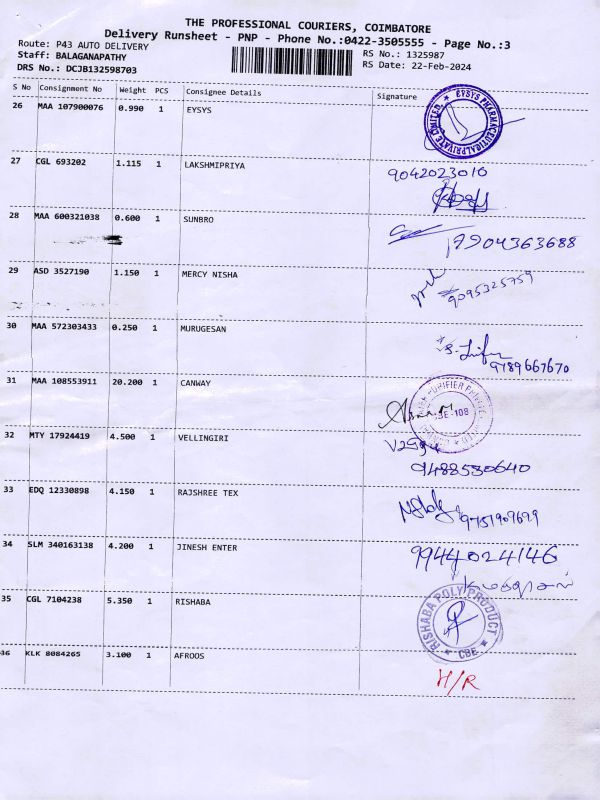 THE PROFESSIONAL COURIERS, COIMBATORE
Delivery Runsheet - PNP - Phone No.:0422-3505555 - Page No.:3
Route: P43 AUTO DELIVERY
RS No.: 1325987
Staff: BALAGANAPATHY
RS Date: 22-Feb-2024
DRS No.: DCJB132598703
S No Consignment No Weight PCS Consignee Details Signature
26 MAA 107900076 0.990 1 EYSYS
★ EYSYS PHARMACEUTICAL PRIVATE LIMITED
27 CGL 693202 1.115 1 LAKSHMIPRIYA
9042023010
28 MAA 600321038 0.600 1 SUNBRO
7904363688
29 ASD 3527190 1.150 1 MERCY NISHA
9095325759
30 MAA 572303433 0.250 1 MURUGESAN
9789667670
31 MAA 108553911 20.200 1 CANWAY
PURIFIER
32 MTY 17924419 4.500 1 VELLINGIRI
9488530640
33 EDQ 12330898 4.150 1 RAJSHREE TEX
9751909699
34 SLM 340163138 4.200 1 JINESH ENTER
9944024146
35 CGL 7104238 5.350 1 RISHABA
RISHABA POLY PRODUCT
★ CBE ★
36 KLK 8084265 3.100 1 AFROOS
H/R